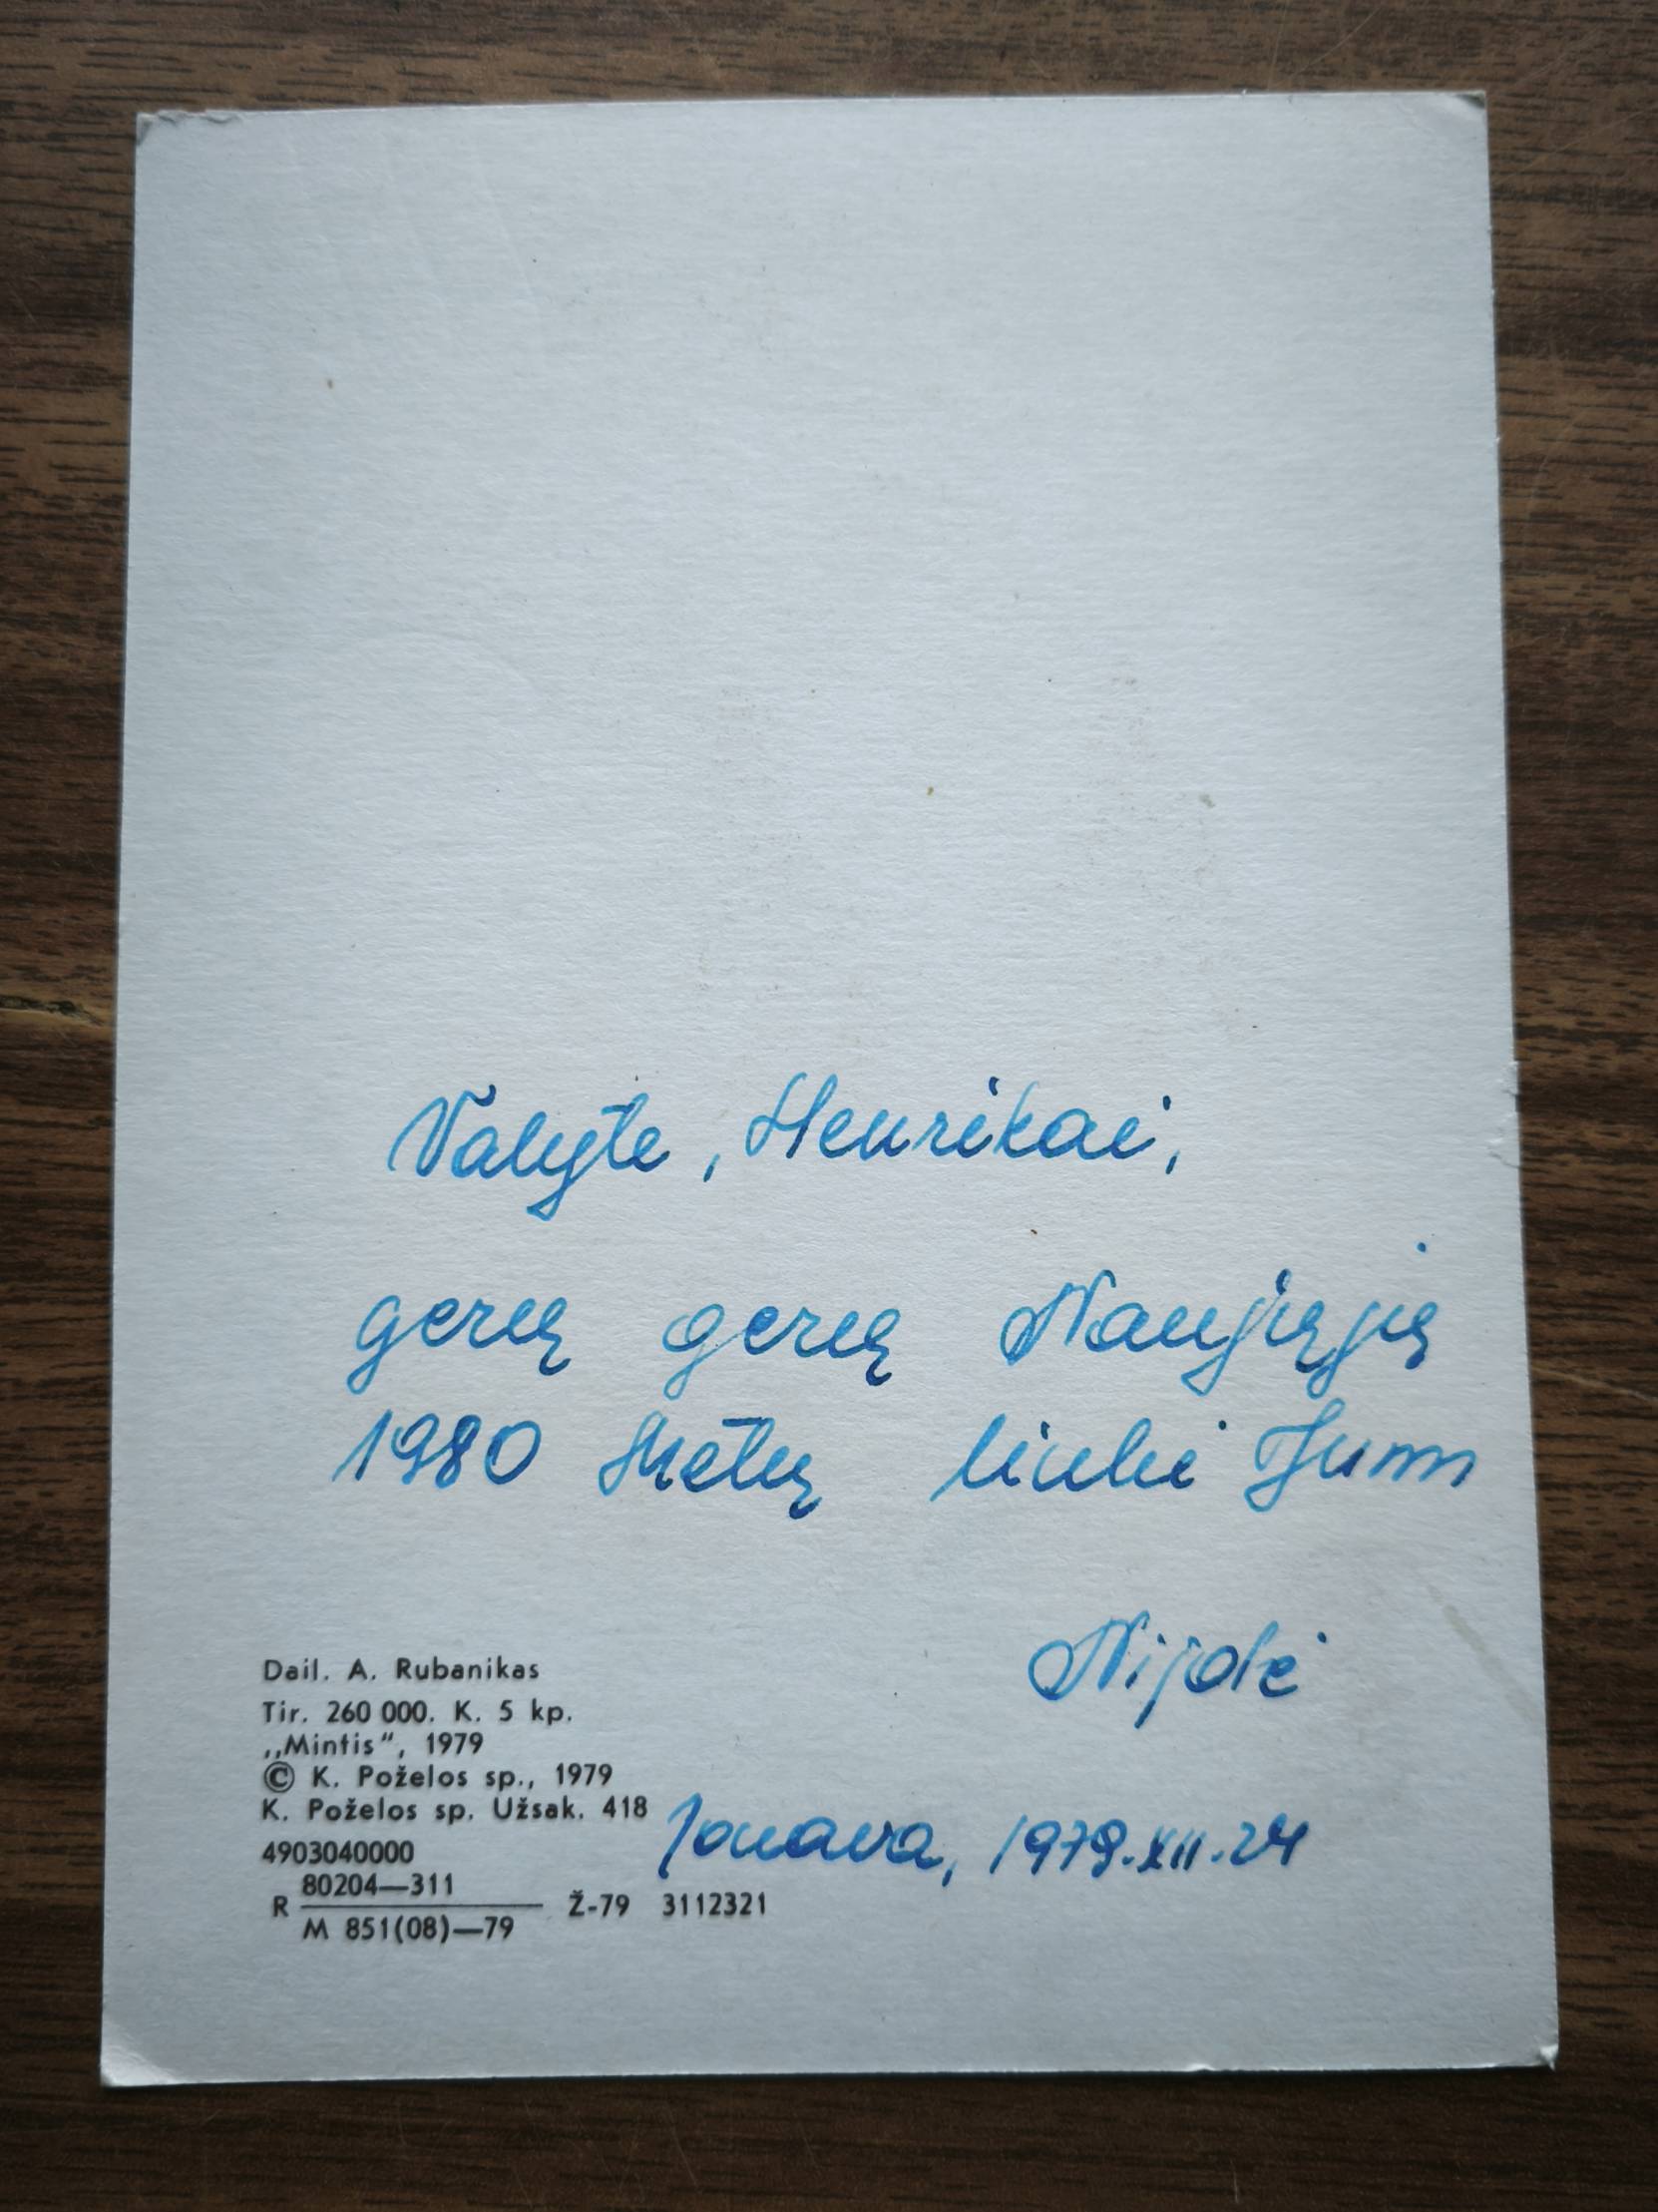 Valyte, Henrikai,
gerų gerų Naujųjų
1980 Metų linki Jums
Nijolė
Dail. A. Rubanikas
Tir. 260 000. K. 5 kp.
„Mintis“, 1979
© K. Poželos sp., 1979
K. Poželos sp. Užsak. 418
Jonava, 1979.XII.24
4903040000
R 80204—311
M 851(08)—79
Ž-79 3112321